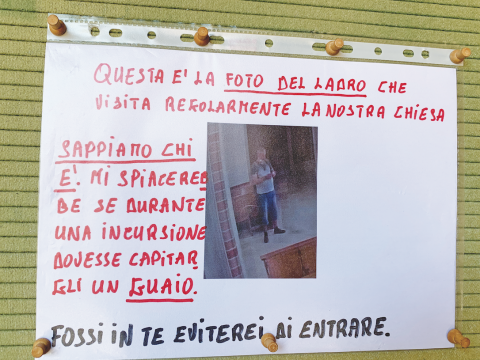 QUESTA E' LA FOTO DEL LADRO CHE
VISITA REGOLARMENTE LA NOSTRA CHIESA
SAPPIAMO CHI
E'. MI SPIACEREB
BE SE DURANTE
UNA INCURSIONE
DOVESSE CAPITAR
GLI UN GUAIO.
FOSSI IN TE EVITEREI DI ENTRARE.